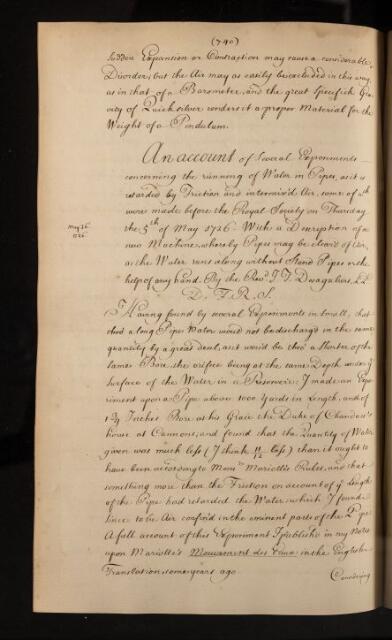 (740)
sudden Expansion or Contraction may cause a considerable
Disorder; but the Air may as easily be excluded in this way
as in that of a Barometer, and the great Specifick Gra-
vity of Quicksilver renders it a proper Material for the
Weight of a Pendulum.
An account of several Experiments
concerning the running of Water in Pipes, as it is
retarded by Friction and intermix'd Air, some of wch
were made before the Royal Society on Thursday
May 5th
1726
the 5th of May 1726. With a Description of a
new Machine, whereby Pipes may be clear'd of Air,
as the Water runs along without Stand Pipes or the
help of any hand. By the Revd. J. T. Desaguliers, LL.
D. F. R. S.
Having found by several Experiments in small, that
thro' a long Pipe Water wou'd not be discharg'd in the same
quantity by a great deal, as it wou'd be thro' a shorter of the
same Bore, the orifice being at the same Depth under ye
surface of the Water in a Reservoir: I made an Expe-
riment upon a Pipe above 1000 Yards in Length, and of
1 3/4 Inches Bore at his Grace the Duke of Chandois's
house at Cannons, and found that the Quantity of Water
given was much less (I think less) than it ought to
have been according to Monsr. Mariotte's Rules, and that
something more than the Friction on account of ye length
of the Pipe had retarded the Water, which I found
since to be Air confin'd in the eminent parts of the Pipe
A full account of this Experiment I publish'd in my Notes
upon Mariotte's Mouvement des Eaux in the English
Translation, some years ago.
Considering